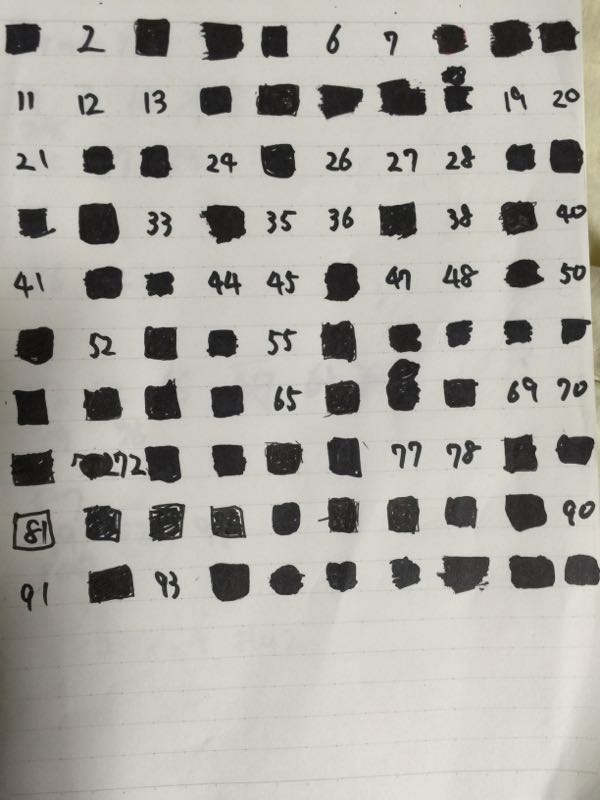 2 6 7
11 12 13 19 20
21 24 26 27 28
33 35 36 38 40
41 44 45 47 48 50
52 55
65 69 70
72 77 78
81 90
91 93